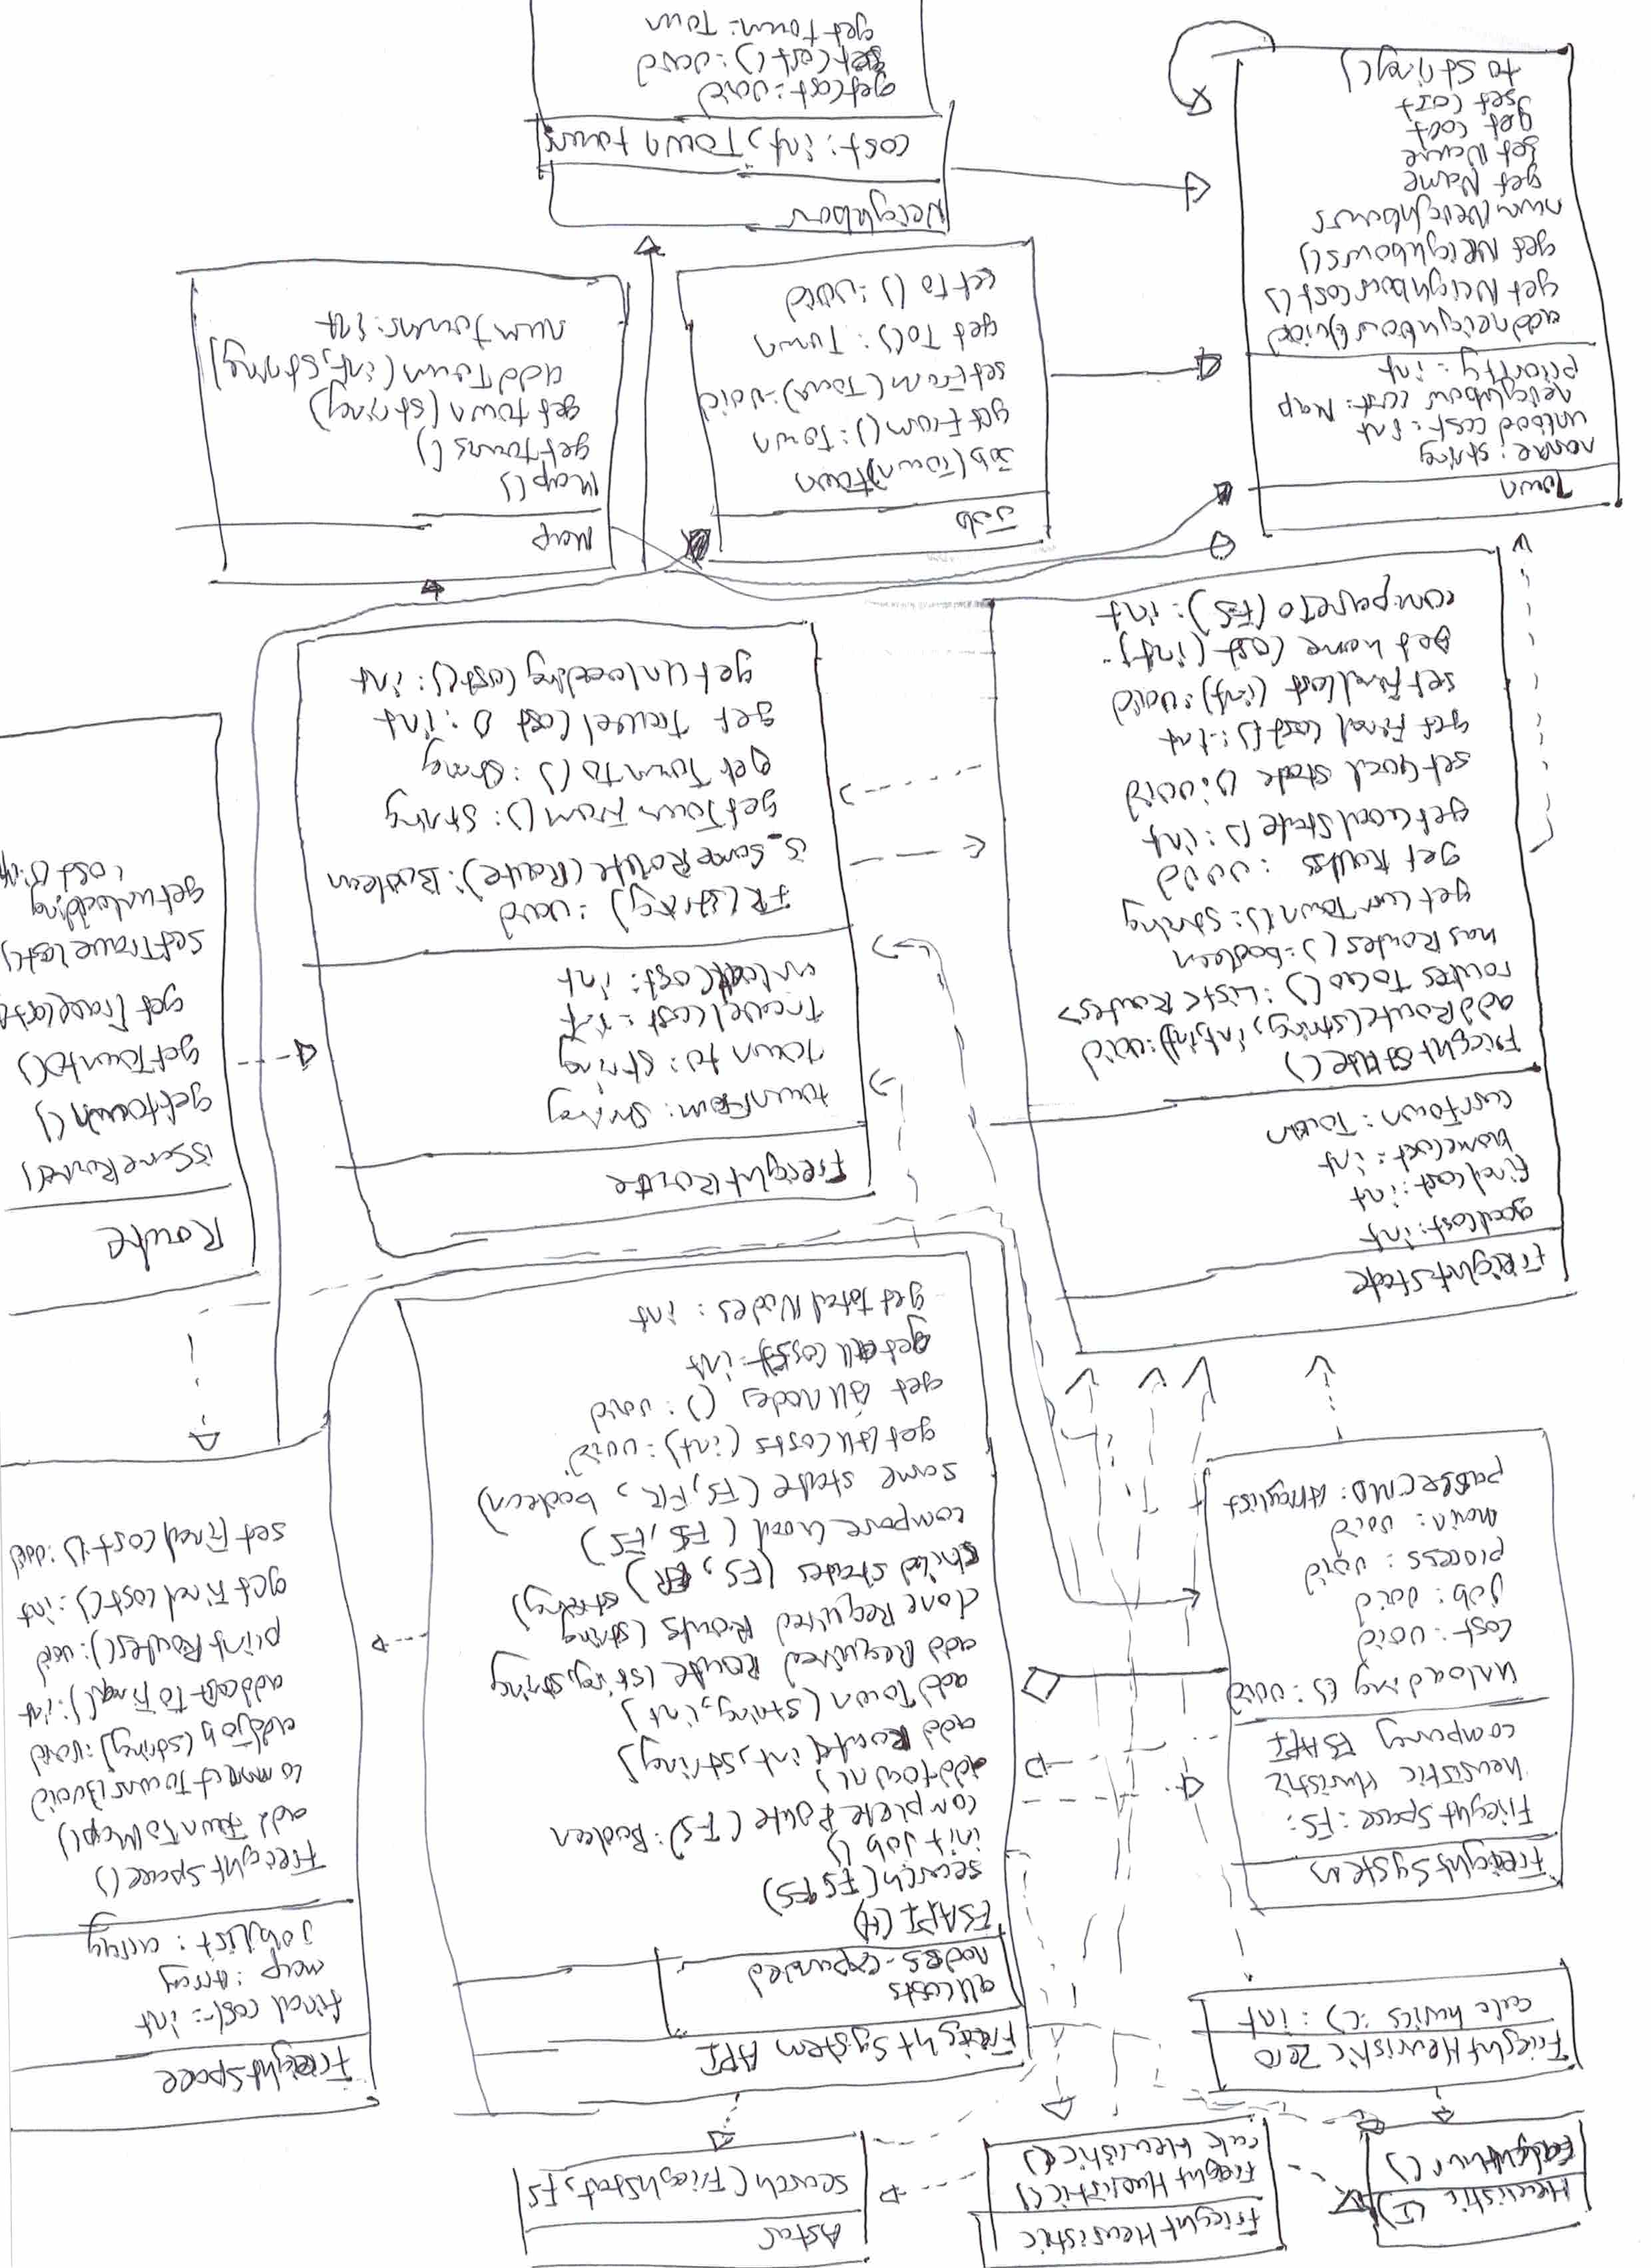 Heuristic (I)
FrieghtHeuristic
Freight Huelistic()
calc Heuristic()
Astar
search(FrieghStat, FS
FrieghtHeuristic Zero
calc hurics :() : int
FreightSystem API
all costs
nodes-expanded
FSAPI(H)
search(FS, FS)
init Job ()
complete Route (FS): Boolean
addtown()
add Route(int, string)
add Town (string, int)
add Required Route (string, string
done Required Routs (string
string)
child states (FS, FR)
compare Goal (FS, FS)
same state (FS, FR, boolean)
get All Costs (int) : void
get All nodes () : void
get all Costs : int
get total Nodes : int
FreightSpace
final cost : int
map : Array
jobList : array
FreightSpace()
add TownToMap()
connect Towns () void
addjob (string) : void
addcost To Final() : int
printRoutes() : void
get Final cost () : int
set Final cost () : void
FreightSystem
FrieghtSpace : FS;
heuristic Huristic
company FSAPI
unloading () : void
cost : void
job : void
process : void
main : void
parseCMD : Arraylist
FreightState
goalCost : int
finalcost : int
homecost : int
currTown : Town
FrieghtState()
addRoute(string, int, int) : void
routes ToGo () : List<Routes>
has Routes () : boolean
get curr Town() : string
get Routes : void
getGoalState () : int
set Goal state () : void
get Final Cost () : int
setFinalCost (int) : void
get home Cost (int)
compareTo (FS) : int
FreightRoute
townFrom : String
town to : string
TravelCost : int
unloadCost : int
FR(string) : void
is_SameRoute(Route) : Boolean
getTown From () : String
get Town to () : String
get Travel Cost () : int
getUnloading Cost() : int
Route
isSameRoute()
gettown ()
getTownto()
get TravelCost()
setTravelCost()
getunloading
cost () : int
Town
name : string
unload cost : int
neighbour cost : Map
priority : int
addneighbour() void
get NeighbourCost()
get Neighbours()
numNeighbours
get Name
set Name
get Cost
set Cost
to String()
Job
Job(Town) Town
getFrom() : Town
setFrom(Town) : void
get To() : Town
set to () : void
Map
Map()
get towns ()
get town (string)
addTown (int, string)
num towns : int
Neighbour
cost : int, Town towns
getCost : void
setCost() : void
get town : Town